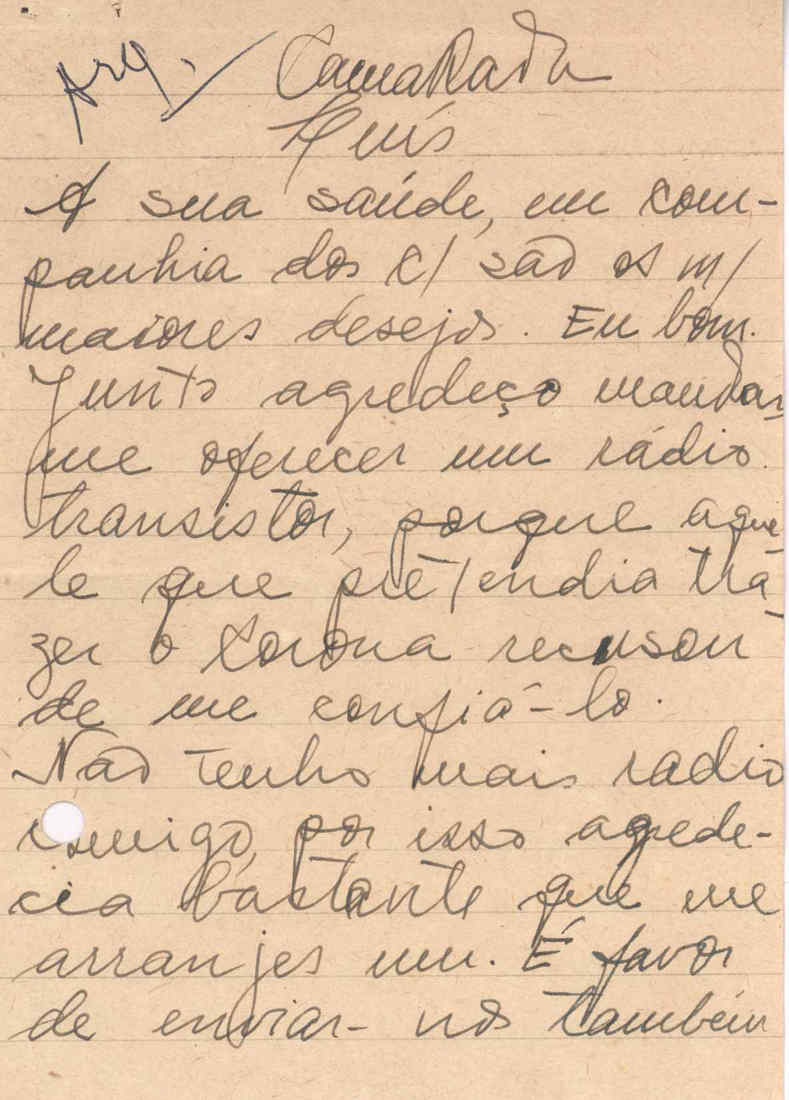 Arq. Camarada
Luís
A sua saúde, em com-
panhia dos c/ são os m/
maiores desejos. Eu bom.
Junto agredeço mandar
me oferecer um rádio
transistor, porque aque-
le que pretendia tra-
zer o Corona recusou
de me confiá-lo.
Não tenho mais radio
comigo, por isso agrede-
cia bastante que me
arranjes um. É favor
de enviar-nos também